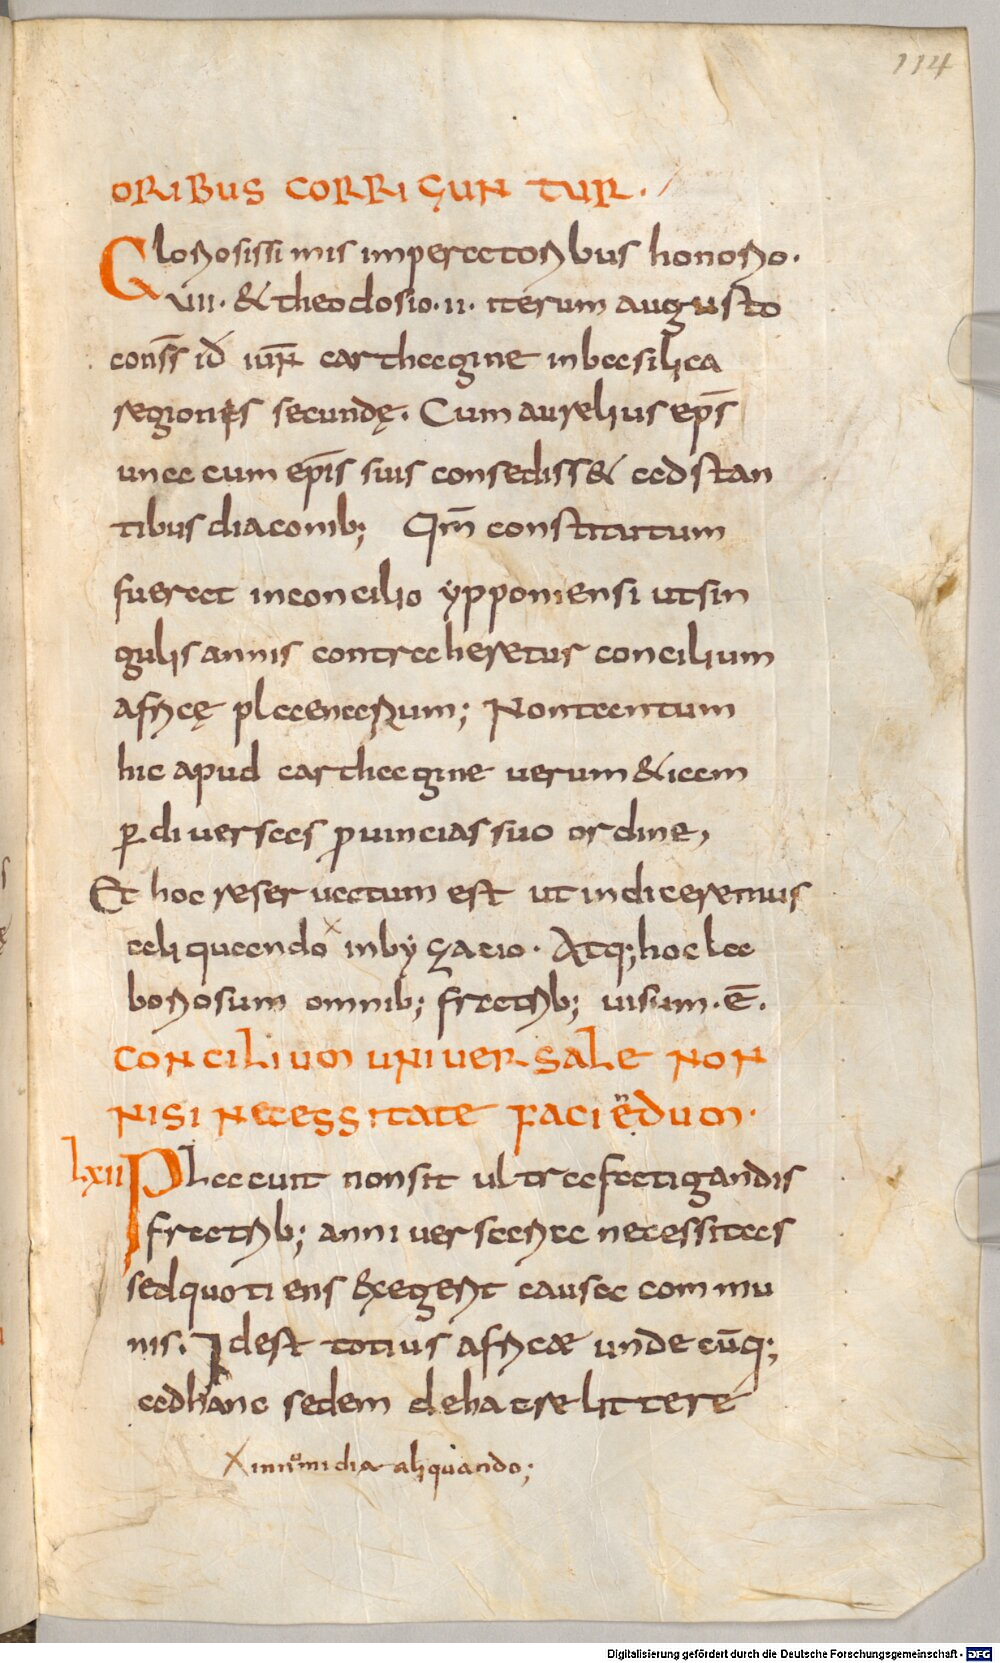 114
ORIBUS CORRIGUNTUR.
Gloriosissimis imperatoribus honorio.
VII. & theodosio. II. iterum augusto
conss̄ id iun̄ carthagine in basilica
regionis secundę. Cum aurelius ep̄s
una cum ep̄is suis consediss& adstan
tibus diaconib; Qm̄ constitutum
fuerat in concilio ypponiensi ut sin
gulis annis contraheretur concilium
africę plaenarium; Non tantum
hic apud carthagine uerum & iam
ꝑ diuersas ꝓuincias suo ordine,
Et hoc reseruatum est ut indiceremus
aliquando in byçacio. Atq; hoc la
boriosum omnib; fratrib; uisum. ē.
CONCILIUM UNIUERSALE NON
NISI NECESSITATE FACIENDUM.
LXII Placuit non sit ultra fatigandis
fratrib; anniuersaria necessitas
sed quotiens exegerit causa commu
nis. Id est totius africae undecūq;
ad hanc sedem de hac re littere
X in numidia aliquando;
Digitalisierung gefördert durch die Deutsche Forschungsgemeinschaft - DFG